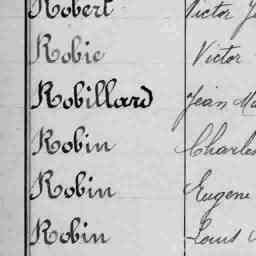 Robert Victor
Robie Victor
Robillard Jean
Robin Charles
Robin Eugene
Robin Louis